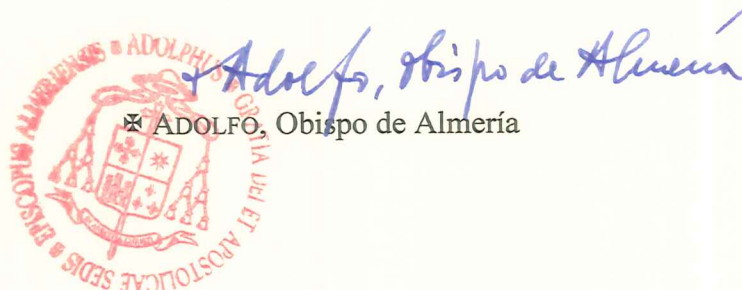 + Adolfo, Obispo de Almería
✠ ADOLFO, Obispo de Almería
ADOLPHUS GRATIA DEI ET APOSTOLICAE SEDIS EPISCOPUS ALMERIENSIS